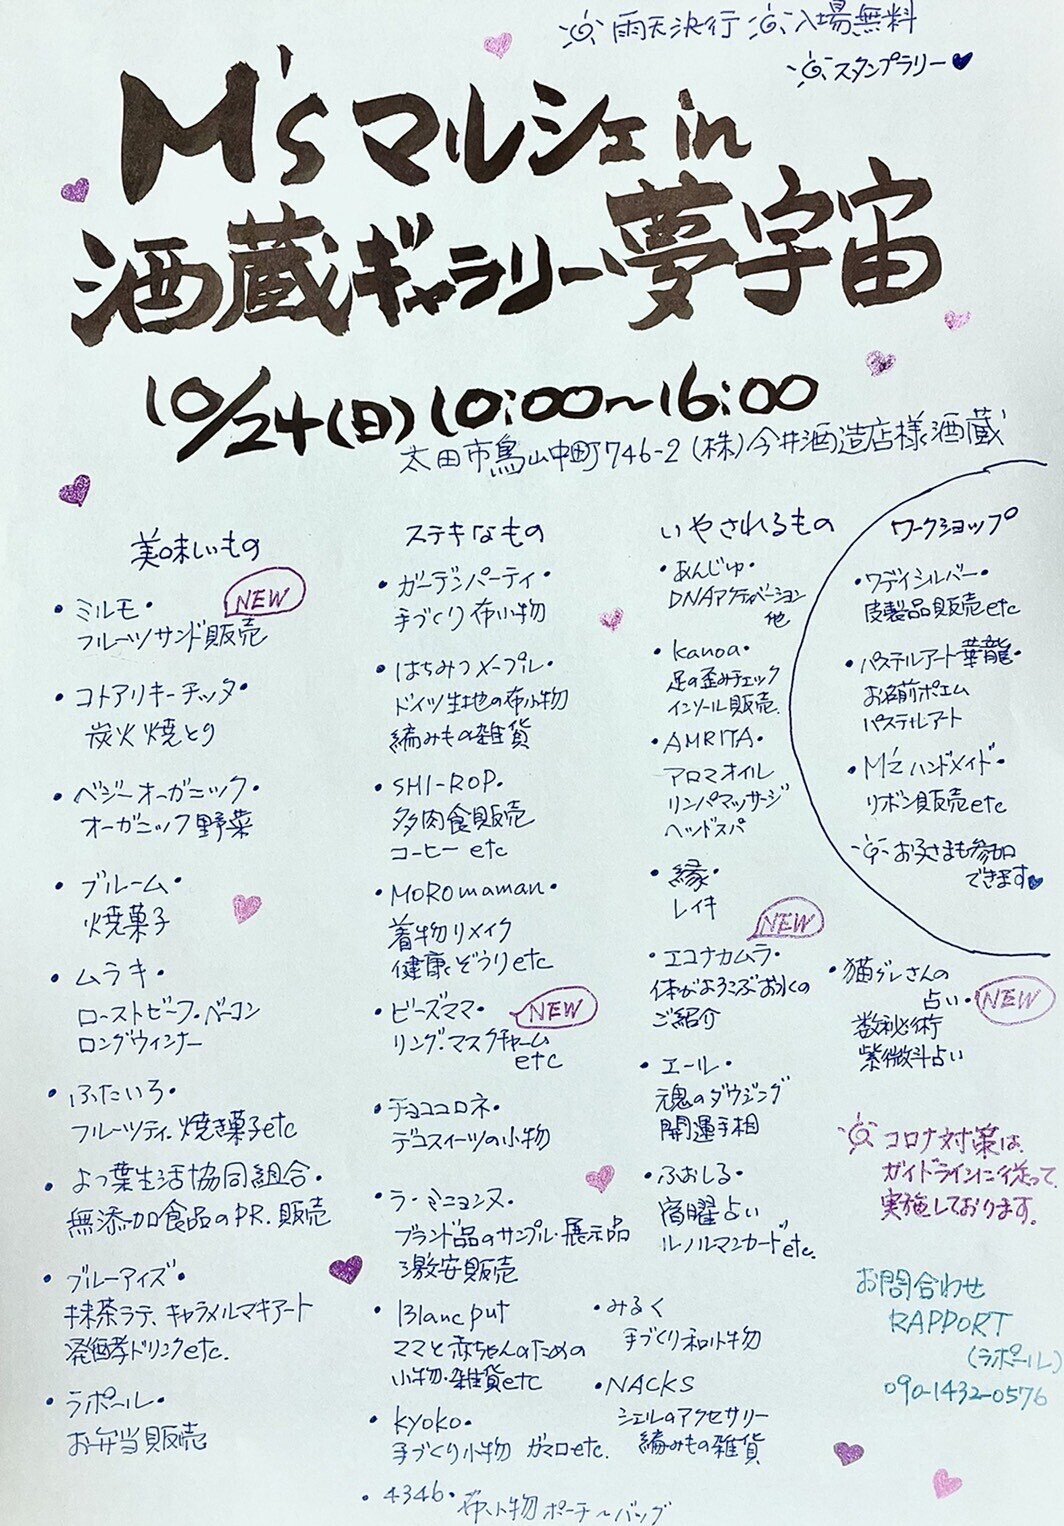 雨天決行 入場無料
スタンプラリー
M'sマルシェin
酒蔵ギャラリー夢宇宙
10/24(日)10:00〜16:00
太田市鳥山中町746-2 (株)今井酒造店様酒蔵
美味しいもの
・ミルモ・ NEW
フルーツサンド販売
・コトアリキーチッタ・
炭火焼とり
・ベジーオーガニック・
オーガニック野菜
・ブルーム・
焼菓子
・ムラキ・
ローストビーフ・ベーコン
ロングウィンナー
・ふたいろ・
フルーツティ.焼き菓子etc
・よつ葉生活協同組合・
無添加食品のPR.販売
・ブルーアイズ・
抹茶ラテ、キャラメルマキアート
発酵ドリンクetc.
・ラポール・
お弁当販売
ステキなもの
・ガーデンパーティ・
手づくり布小物
・はちみつメープル・
ドイツ生地の布小物
編みもの雑貨
・SHI-ROP.
多肉食販売
コーヒー etc
・MOROmaman・
着物リメイク
健康ぞうりetc
・ビーズママ・ NEW
リング.マスクチャーム
etc
・チョココロネ・
デコスイーツの小物
・ラ・ミニョンヌ・
ブランド品のサンプル・展示品
激安販売
・Blanc put
ママと赤ちゃんのための
小物・雑貨etc
・kyoko・
手づくり小物 ガマ口etc.
・4346・ 布小物 ポーチ〜バッグ
・みるく
手づくり和小物
・NACKS
シェルのアクセサリー
編みもの雑貨
いやされるもの
・あんじゅ・
DNAアクティベーション
他
・kanoa・
足の歪みチェック
インソール販売.
・AMRITA・
アロマオイル
リンパマッサージ
ヘッドスパ
・縁・
レイキ
NEW
・エコナカムラ・
体がよろこぶお水の
ご紹介
・エール・
魂のダウジング
開運手相
・ふおしる・
宿曜占い
ルノルマンカードetc.
ワークショップ
・ワディシルバー・
皮製品販売etc
・パステルアート華龍・
お名前ポエム
パステルアート
・M'zハンドメイド・
リボン販売etc
お子さまも参加
できます
・猫グレさんの
占い・ NEW
数秘術
紫微斗占い
コロナ対策は、
ガイドラインに従って
実施しております。
お問合わせ
RAPPORT
(ラポール)
090-1432-0576